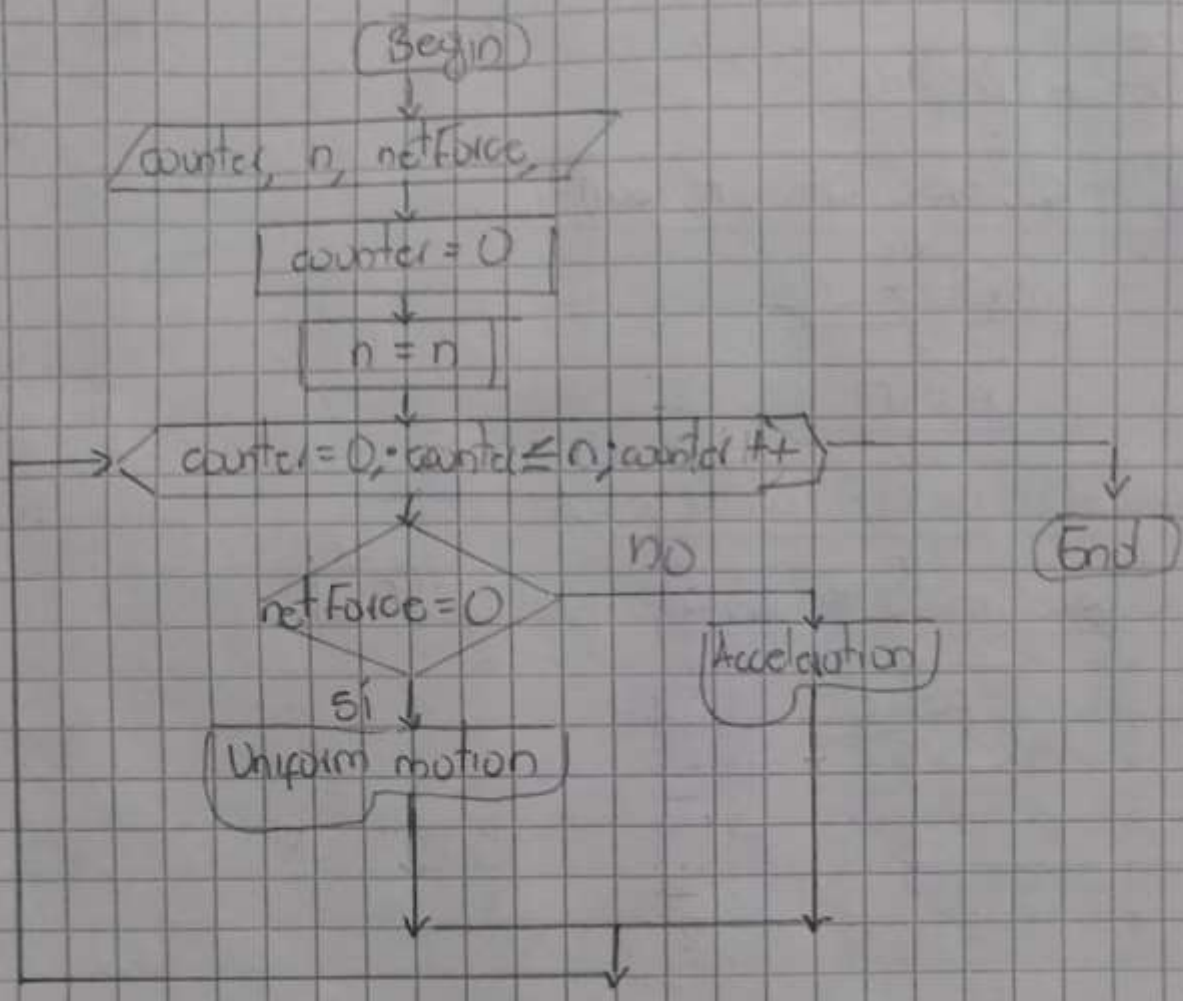 Begin
counter, n, netForce,
counter = 0
n = n
counter = 0; counter ≤ n; counter ++
End
no
netForce = 0
Acceleration
sí
Uniform motion